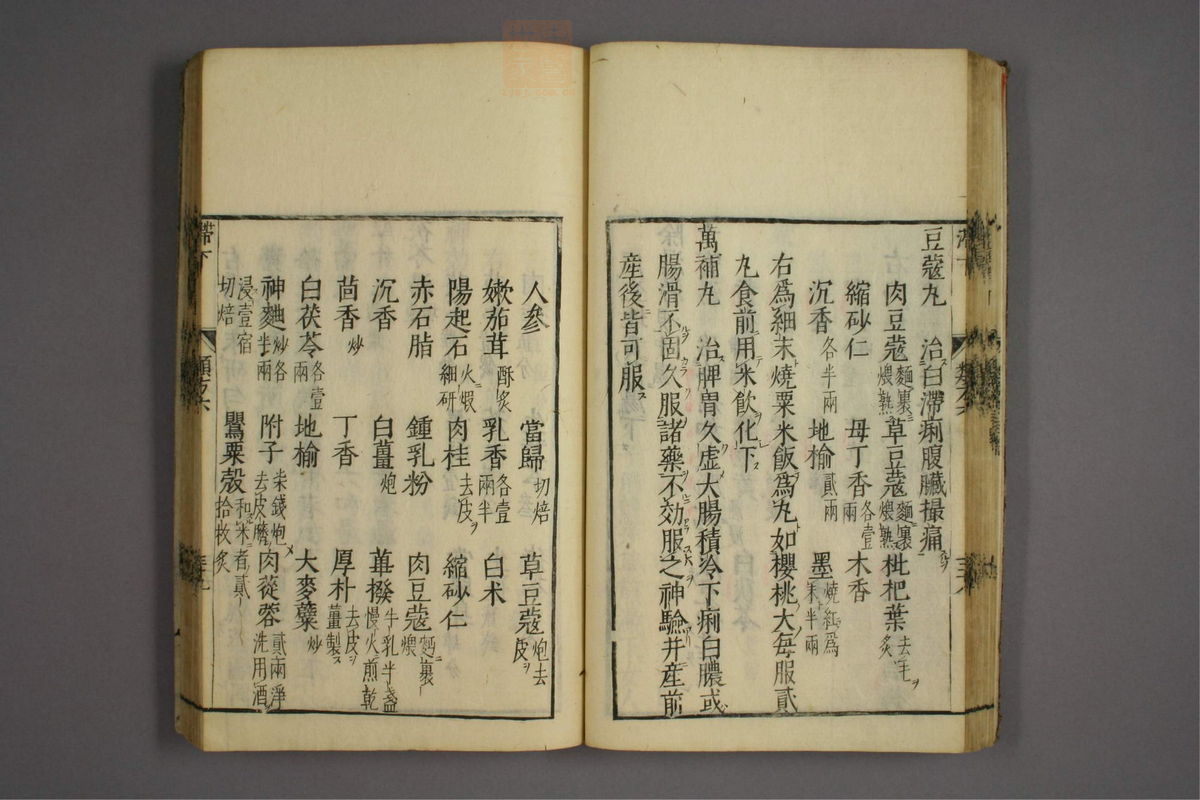 豆蔻丸 治白滯痢腹臟撮痛
肉豆蔻麵裹煨熟 草豆蔻麵裹煨熟 枇杷葉去毛炙
縮砂仁 母丁香各壹兩 木香
沉香各半兩 地榆貳兩 墨燒紅爲末半兩
右爲細末燒粟米飯爲丸如櫻桃大每服貳
丸食前用米飲化下
萬補丸 治脾胃久虛大腸積冷下痢白膿或
腸滑不固久服諸藥不効服之神驗并産前
産後皆可服
人參 當歸切焙 草豆蔻炮去皮
嫩茄茸酥炙 乳香各壹兩半 白术
陽起石火煅細研 肉桂去皮 縮砂仁
赤石脂 鍾乳粉 肉豆蔻麵裹煨
沉香 白薑炮 蓽撥牛乳半盞慢火煎乾
茴香炒 丁香 厚朴去皮薑製
白茯苓各壹兩 地榆 大麥蘖炒
神麯炒各半兩 附子柒錢炮去皮臍 肉蓯蓉貳兩淨洗用酒
浸壹宿切焙 罌粟殼和米者貳拾枚炙